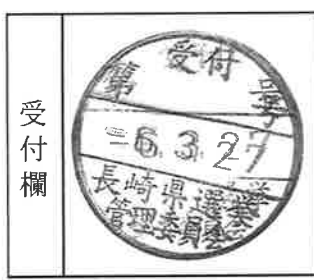 受付欄
受付
第 号
-6.3.27
長崎県選挙
管理委員会